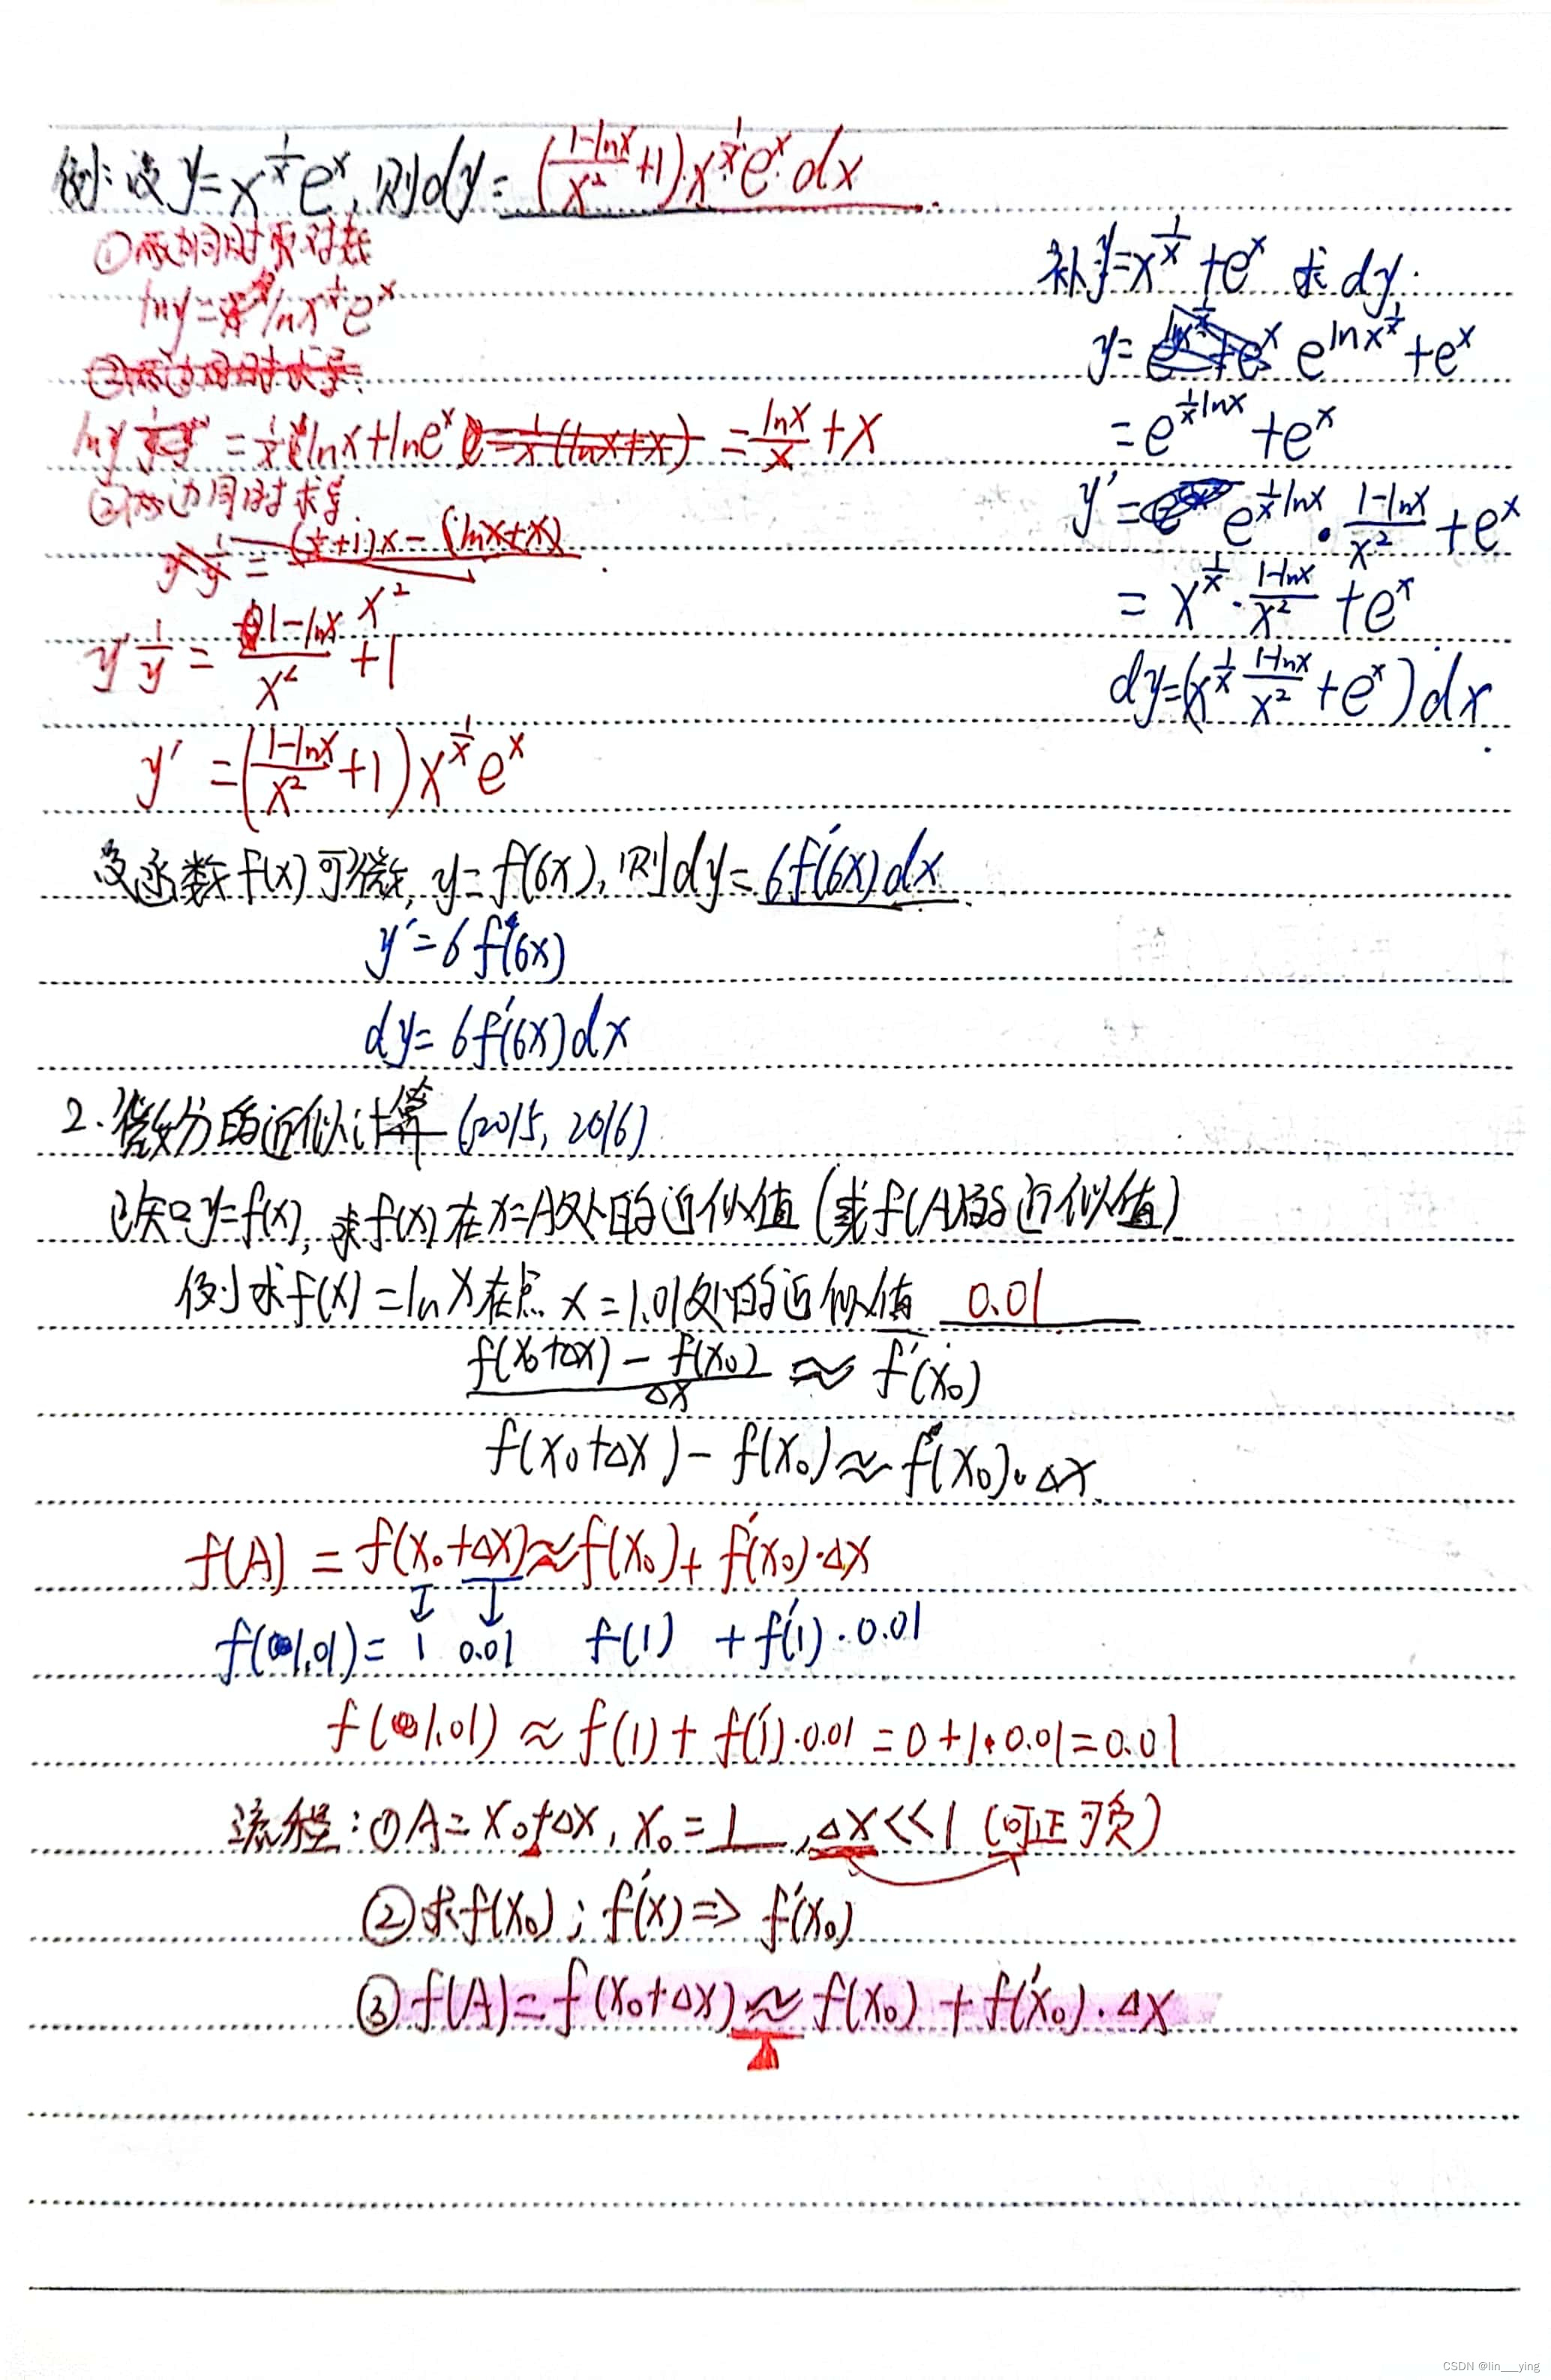 例:设 y=x^{1/x}e^x, 则dy=((1-lnx)/x²+1)·x^{1/x}e^x dx.
①两边同时取对数
lny=lnx^{1/x}e^x
lny=1/x lnx+lne^x=lnx/x+x
②两边同时求导
y'1/y=(1-lnx)/x²+1
y'=((1-lnx)/x²+1)x^{1/x}e^x
补y=x^{1/x}+e^x 求dy.
y=e^{lnx^{1/x}}+e^x
=e^{1/x lnx}+e^x
y'=e^{1/x lnx}·(1-lnx)/x²+e^x
=x^{1/x}·(1-lnx)/x²+e^x
dy=(x^{1/x}(1-lnx)/x²+e^x)dx.
设函数f(x)可微, y=f(6x), 则dy=6f'(6x)dx.
y'=6f'(6x)
dy=6f'(6x)dx
2.微分的近似计算(2015, 2016)
已知y=f(x), 求f(x)在x=A处的近似值(或f(A)的近似值)
例求f(x)=lnx在点x=1.01处的近似值 0.01
(f(x₀+Δx)-f(x₀))/Δx≈f'(x₀)
f(x₀+Δx)-f(x₀)≈f'(x₀)·Δx.
f(A)=f(x₀+Δx)≈f(x₀)+f'(x₀)·Δx
↓ ↓
f(1.01)= 1 0.01 f(1) +f'(1)·0.01
f(1.01)≈f(1)+f'(1)·0.01=0+1·0.01=0.01
流程:①A=x₀+Δx, x₀=1, Δx<<1(可正可负)
②求f(x₀); f'(x)=>f'(x₀)
③f(A)=f(x₀+Δx)≈f(x₀)+f'(x₀)·Δx
CSDN @lin___ying